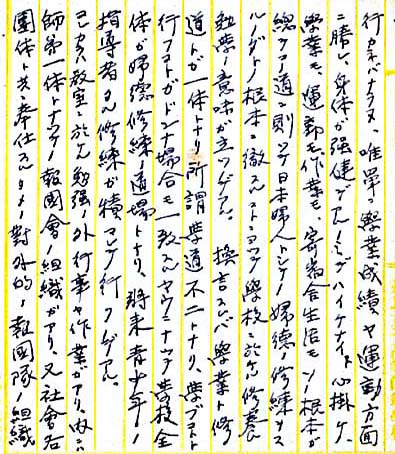 行カネバナラヌ、唯単ニ学業成績ヤ運動方面
ニ勝レ、身体ガ強健デアルノミデハイケナイト心掛ケ、
学業モ、運動モ、作業モ、寄宿舎生活モソノ根本ガ
総ケテ道ニ則ツテ日本婦人トシテノ婦徳ノ修練ナス
ルノダトノ根本ニ徹スルコトニヨツテ学校ニ於ケル修養
勉学ノ意味ガ立ツノデアル。換言スレバ学業ト修
道トガ一体トナリ所謂学道不二トナリ、学ブコトト
行フコトガドンナ場合モ一致スルヤウニナツテ学校全
体ガ婦徳修練ノ道場トナリ、将来青少年ノ
指導者タル修練ガ積マレテ行クノデアル。
コノホカ教室ニ於ケル勉強ノ外行事ヤ作業ガアリ、内ニハ
師弟一体トナツテノ報国会ノ組織ガアリ、又社会各
団体ト共ニ奉仕スルタメノ対外的ノ報国隊ノ組織